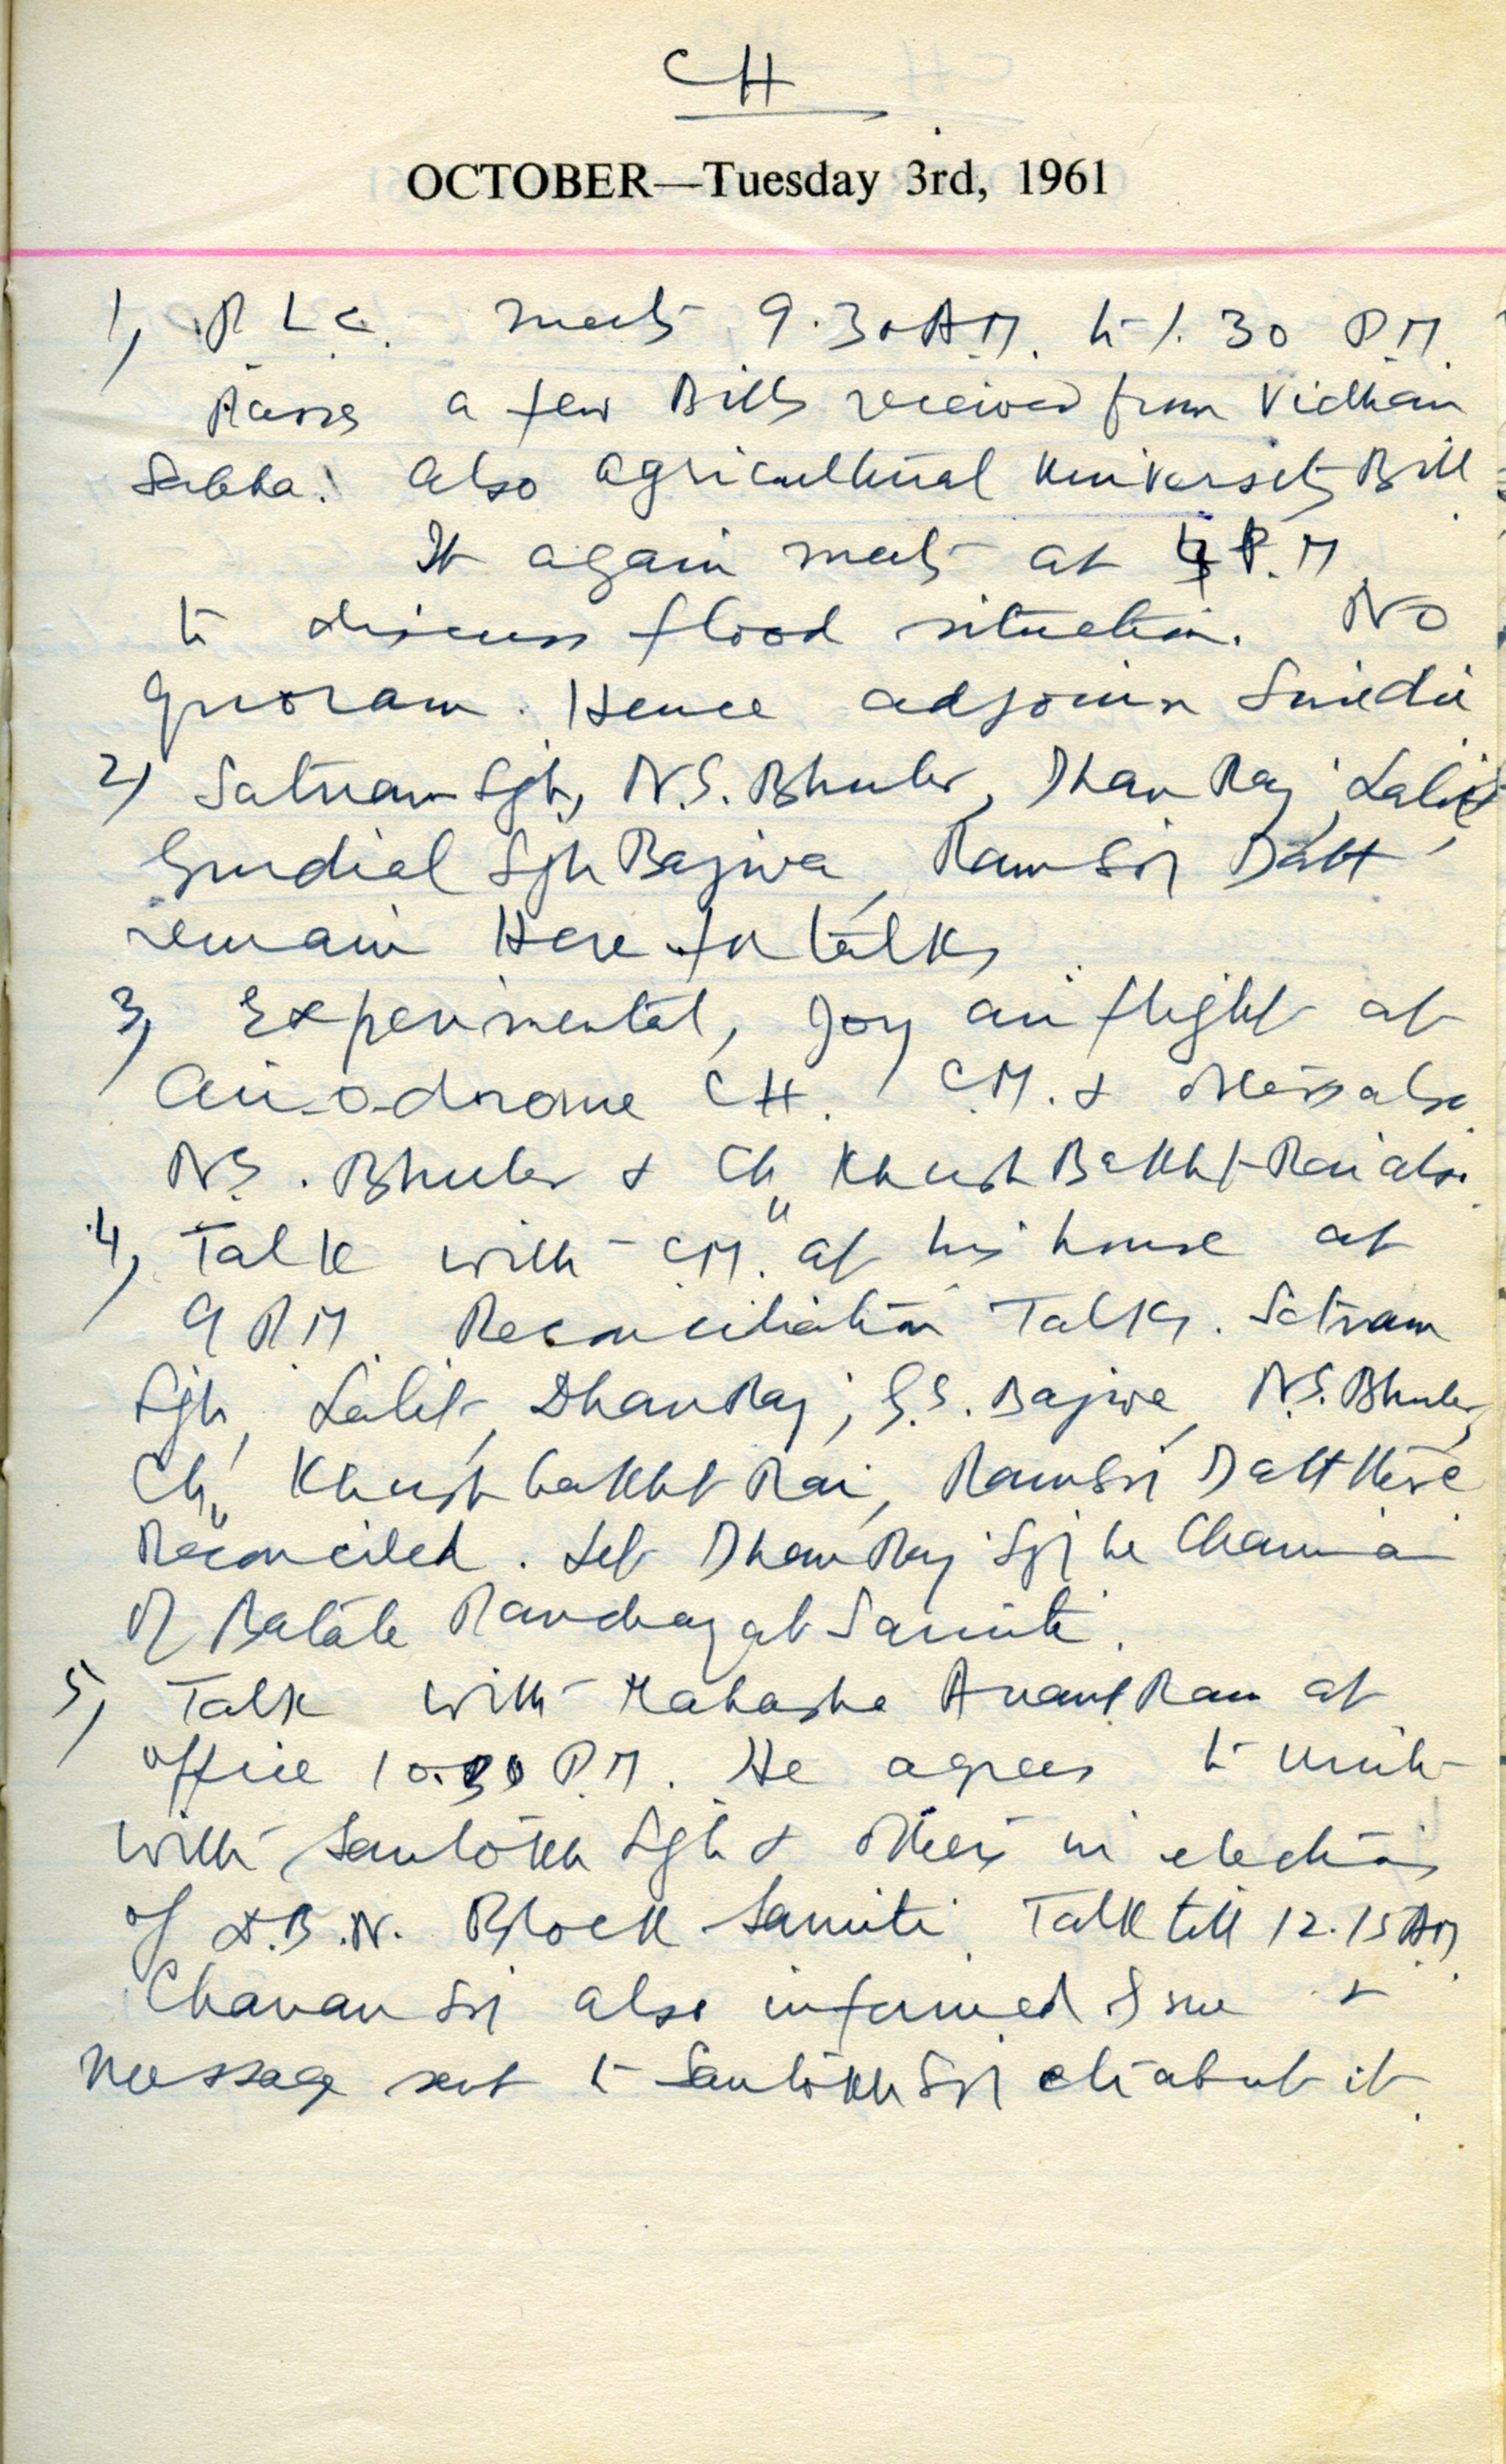 CH
OCTOBER—Tuesday 3rd, 1961
1, P.L.C. meets 9.30 A.M. to 1.30 P.M.
Passes a few Bills received from Vidhan
Sabha. Also Agricultural University Bill
It again meets at 4 P.M
to discuss flood situation. No
quoram. Hence adjourn
2, Satnam Sgh, N.S. Bhuler, Dhan Raj, Lalit
Gurdial Sgh Bajwa, Ram Sri Datt
remain Here for talks
3, Experimental, Joy air flight at
Air-o-drome CH. C.M. & others also
N.S. Bhuler & Ch, Khush Bakht Rai also.
4, Talk with C.M. at his house at
9 P.M Reconciliation Talks. Satnam
Sgh, Lalit, Dhan Raj, G.S. Bajwa, N.S. Bhuler,
Ch, Khush bakht Rai, Ram Sri Datt Here
Reconciled. Let Dhan Raj Sri be
of Batala Panchayat Samiti.
5, Talk with Mahasha Anant Ram at
office 10.30 P.M. He agrees to unite
with Santokh Sgh & others in elections
of D.B.N. Block Samiti. Talk till 12.15 AM
Chanan Sri also informed &
Message sent to Santokh Sri etc about it.